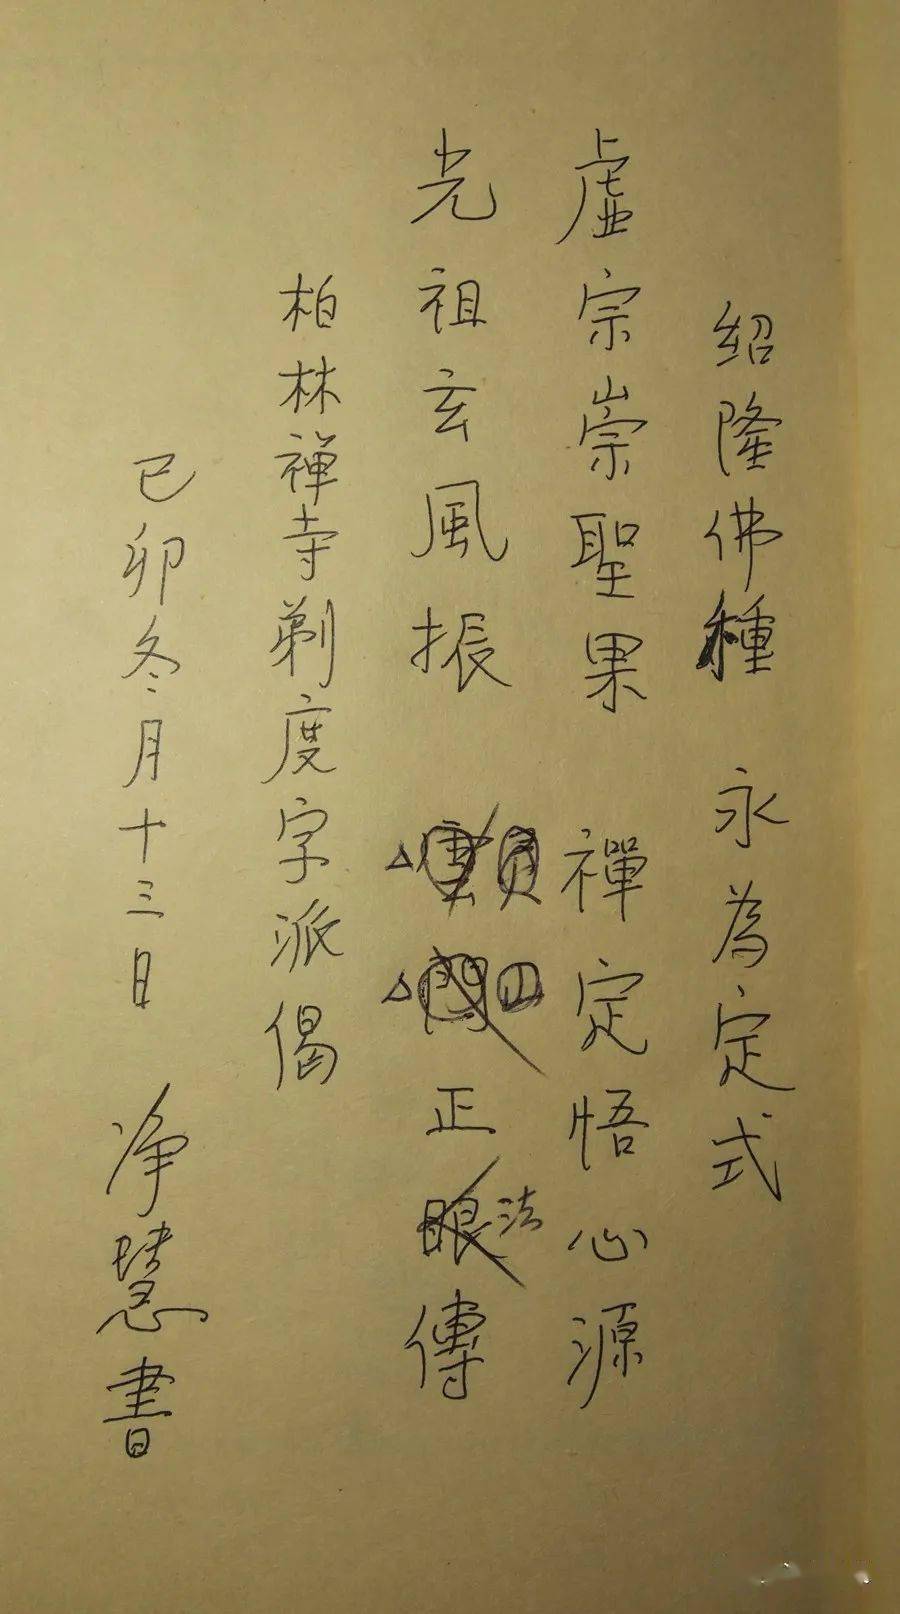 绍隆佛種 永為定式
虚宗崇聖果 禪定悟心源
光祖玄風振 雲門正眼法傳
柏林禅寺剃度字派偈
己卯冬月十三日 净慧書